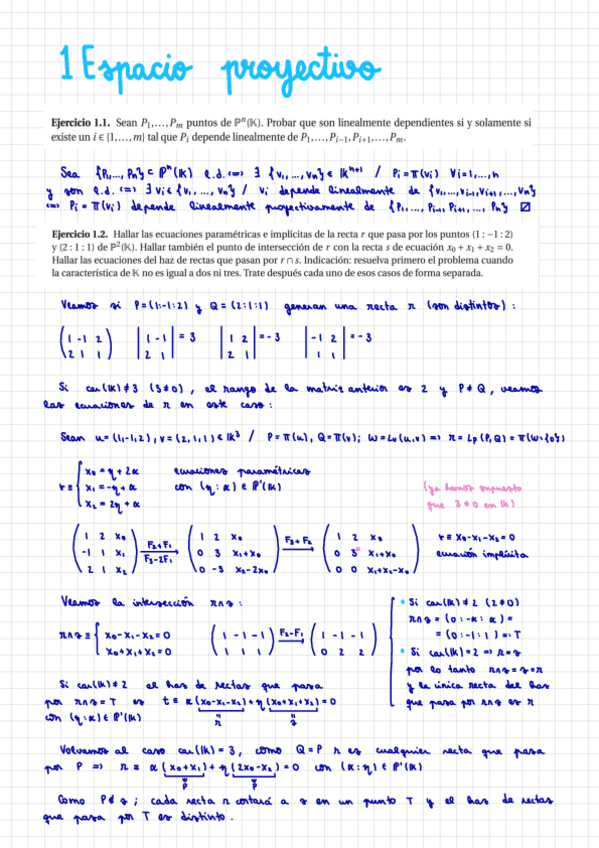 1 Espacio proyectivo
Ejercicio 1.1. Sean P₁,…,Pₘ puntos de ℙⁿ(𝕂). Probar que son linealmente dependientes si y solamente si
existe un i ∈ {1,…,m} tal que Pᵢ depende linealmente de P₁,…,Pᵢ₋₁,Pᵢ₊₁,…,Pₘ.
Sea {P₁,..., Pₙ} ⊂ ℙⁿ(𝕂) l.d. ⟺ ∃ {v₁,...,vₙ} ∈ 𝕂ⁿ⁺¹ / Pᵢ = π(vᵢ) ∀i=1,...,n
y son l.d. ⟺ ∃ vᵢ ∈ {v₁,...,vₙ} / vᵢ depende linealmente de {v₁,...,vᵢ₋₁,vᵢ₊₁,...,vₙ}
⟺ Pᵢ = π(vᵢ) depende linealmente proyectivamente de {P₁,..., Pᵢ₋₁, Pᵢ₊₁, ..., Pₙ} ☑
Ejercicio 1.2. Hallar las ecuaciones paramétricas e implícitas de la recta r que pasa por los puntos (1 : −1 : 2)
y (2 : 1 : 1) de ℙ²(𝕂). Hallar también el punto de intersección de r con la recta s de ecuación x₀ + x₁ + x₂ = 0.
Hallar las ecuaciones del haz de rectas que pasan por r ∩ s. Indicación: resuelva primero el problema cuando
la característica de 𝕂 no es igual a dos ni tres. Trate después cada uno de esos casos de forma separada.
Veamos si P=(1:-1:2) y Q=(2:1:1) generan una recta r (son distintos):
(1 -1 2) |1 -1| = 3 |1 2| = -3 |-1 2| = -3
(2 1 1) |2 1| |2 1| |1 1|
Si car(𝕂)≠3 (3≠0), el rango de la matriz anterior es 2 y P≠Q, veamos
las ecuaciones de r en este caso:
Sean u=(1,-1,2), v=(2,1,1) ∈ 𝕂³ / P=π(u), Q=π(v); W=L(u,v) ⟹ r=Lp(P,Q)=π(W\{0})
x₀ = η + 2α ecuaciones paramétricas
r ≡ { x₁ = -η + α con (η:α) ∈ ℙ¹(𝕂) (ya hemos supuesto
x₂ = 2η + α que 3≠0 en 𝕂)
(1 2 x₀) (1 2 x₀) (1 2 x₀) r ≡ x₀-x₁-x₂=0
(-1 1 x₁) F₂+F₁ → F₃-2F₁ (0 3 x₁+x₀) F₃+F₂ → (0 3 x₁+x₀) ecuación implícita
(2 1 x₂) (0 -3 x₂-2x₀) (0 0 x₁+x₂-x₀)
Veamos la intersección r∩s:
r∩s ≡ { x₀-x₁-x₂=0 (1 -1 -1) F₂-F₁ → (1 -1 -1)
x₀+x₁+x₂=0 (1 1 1) (0 2 2)
• Si car(𝕂)≠2 (2≠0)
r∩s = (0:-α:α) =
= (0:-1:1) =: T
• Si car(𝕂)=2 ⟹ r=s
por lo tanto r∩s=s=r
y la única recta del haz
que pasa por r∩s es r
Si car(𝕂)≠2 el haz de rectas que pasa
por r∩s=T es t ≡ α(x₀-x₁-x₂)+η(x₀+x₁+x₂)=0
con (η:α) ∈ ℙ¹(𝕂) r s
Volvamos al caso car(𝕂)=3, como Q=P r es cualquier recta que pasa
por P ⟹ r ≡ α(x₀+x₁)+η(2x₀-x₂)=0 con (α:η) ∈ ℙ¹(𝕂)
P P
Como P∉s; cada recta r cortará a s en un punto T y el haz de rectas
que pasa por T es distinto.